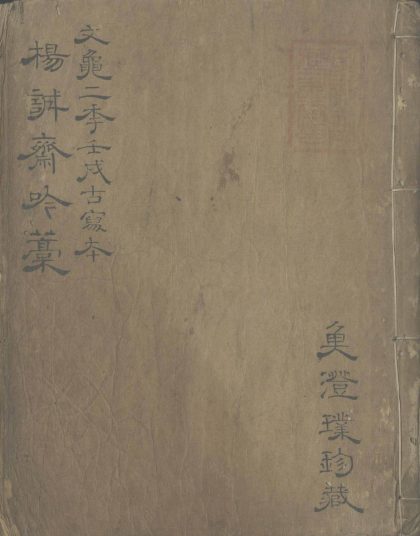 澄璞珍藏
文龜二季壬戌古寫本
楊誠齋吟藁